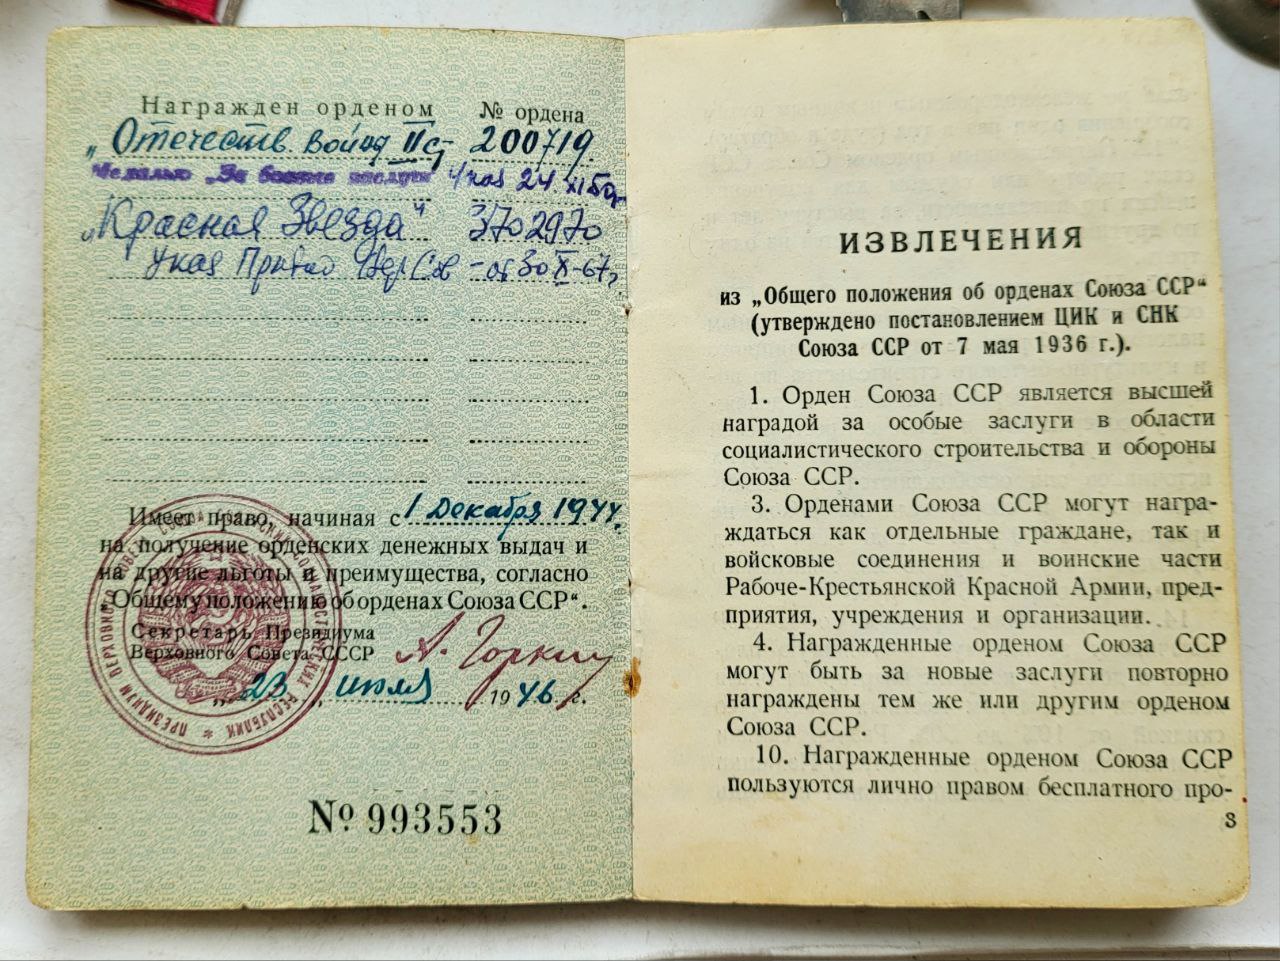 Награжден орденом № ордена
„Отечеств. войны II ст 200719
Медалью „За боевые заслуги" Указ 24 XI 50г
„Красная Звезда" 3702970
Указ През Вер Сов - от 30 X-67г
Имеет право, начиная с 1 декабря 1944г.
на получение орденских денежных выдач и
на другие льготы и преимущества, согласно
„Общему положению об орденах Союза ССР“.
Секретарь Президиума
Верховного Совета СССР А. Горкин
„23 июля 1946 г.
№ 993553
ИЗВЛЕЧЕНИЯ
из „Общего положения об орденах Союза ССР“
(утверждено постановлением ЦИК и СНК
Союза ССР от 7 мая 1936 г.).
1. Орден Союза ССР является высшей
наградой за особые заслуги в области
социалистического строительства и обороны
Союза ССР.
3. Орденами Союза ССР могут награ-
ждаться как отдельные граждане, так и
войсковые соединения и воинские части
Рабоче-Крестьянской Красной Армии, пред-
приятия, учреждения и организации.
4. Награжденные орденом Союза ССР
могут быть за новые заслуги повторно
награждены тем же или другим орденом
Союза ССР.
10. Награжденные орденом Союза ССР
пользуются лично правом бесплатного про-
3